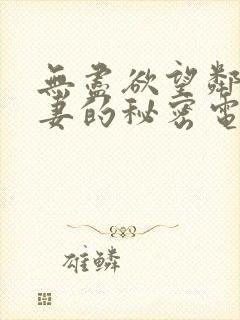 無盡欲望鄰
妻的秘密電
雄鱗